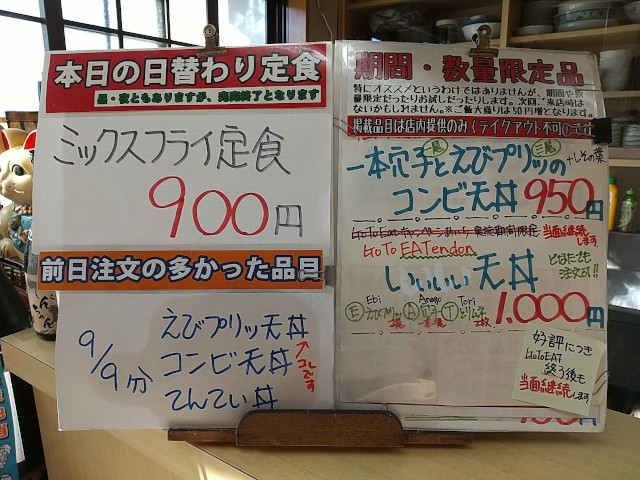 本日の日替わり定食
昼・夜ともありますが、完売終了となります
ミックスフライ定食
900円
前日注文の多かった品目
9/9分
えびプリッ天丼
コンビ天丼
てんてい丼
↑コレです
期間・数量限定品
特にオススメというわけではありませんが、期間や数
量限定だったりお試しだったりします。次回ご来店時は
ないかもしれません。※ご飯大盛りは50円増となります。
掲載品目は店内提供のみ(テイクアウト不可)です
一本穴子と二尾えびプリッの三尾
+しその葉
コンビ天丼 950円
GoToEatキャンペーンあいち 実施期間限定
当面継続します
GoTo EATendon
いいいい天丼
どなたでも
注文可!!
Ebi Anago Tori
Eえびプリッ2尾 Aアナゴ一本 Tとりムネ2枚 1,000円
好評につき
GoToEAT
終了後も
当面継続します